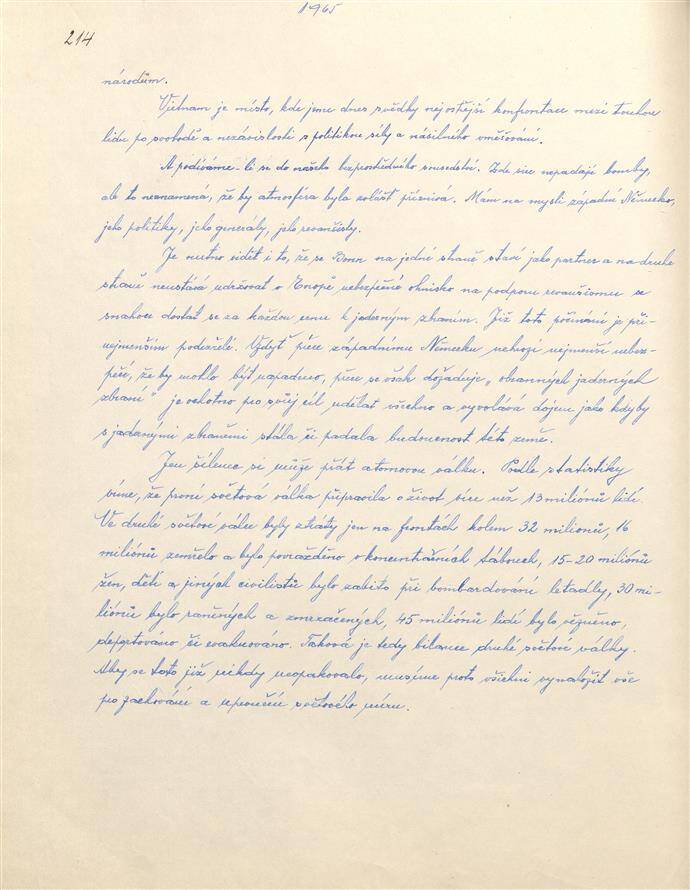 1965
214
národům.
Vietnam je místo, kde jsme dnes svědky nejostřejší konfrontace mezi touhou
lidu po svobodě a nezávislosti s politikou síly a násilného vměšování.
A podíváme-li se do našeho bezpostředného sousedství. Zde sice nepadají bomby,
ale to neznamená, že by atmosféra byla zvlášť příznivá. Mám na mysli západní Německo,
jeho politiky, jeho generály, jeho revanšisty.
Je nutno vidět i to, že se Bonn na jedné straně staví jako partner a na druhé
straně neustává udržovat v Evropě nebezpečné ohnisko na podporu revanšismu se
snahou dostat se za každou cenu k jaderným zbraním. Již toto počínání je při-
nejmenším podezřelé. Vždyť přece západnímu Německu nehrozí nejmenší nebez-
pečí, že by mohlo být napadeno, přece se však dožaduje „obranných jaderných
zbraní" je ochotno pro svůj cíl udělat všechno a vyvolává dojem jako kdyby
s jadernými zbraněmi stála či padala budoucnost této země.
Jen šílenec si může přát atomovou válku. Podle statistiky
víme, že první světová válka připravila o život více než 13 miliónů lidí.
Ve druhé světové válce byly ztráty jen na frontách kolem 32 milionů, 16
miliónů zemřelo a bylo povražděno v koncentračních táborech, 15-20 miliónů
žen, dětí a jiných civilistů bylo zabito při bombardování letadly, 30 mi-
liónů bylo raněných a zmrzačených, 45 miliónů lidí bylo vězněno,
deportováno či evakuováno. Taková je tedy bilance druhé světové války.
Aby se toto již nikdy neopakovalo, musíme proto všichni vynaložit vše
pro zachování a upevnění světového míru.